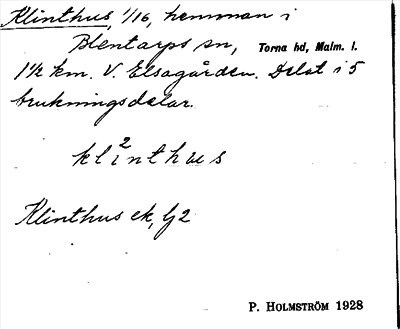 Klinthus, 1/16, hemman i
Blentarps sn, Torna hd, Malm. l.
1 1/2 km. V. Elsagården. Delat i 5
brukningsdelar.
2
klinthus
Klinthus ek, Gj2
P. HOLMSTRÖM 1928